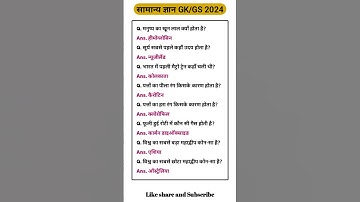 सामान्य ज्ञान GK/GS 2024
Q. मनुष्य का खून लाल क्यों होता है?
Ans. हीमोग्लोबिन
Q. सूर्य सबसे पहले कहाँ उदय होता है?
Ans. न्यूजीलैंड
Q. भारत में पहली मैट्रो ट्रेन कहाँ चली थी?
Ans. कोलकाता
Q. पत्तों का पीला रंग किसके कारण होता है?
Ans. कैरोटिन
Q. पत्तों का हरा रंग किसके कारण होता है?
Ans. क्लोरोफिल
Q. फूली हुई रोटी में कौन सी गैस होती है?
Ans. कार्बन डाइऑक्साइड
Q. विश्व का सबसे बड़ा महाद्वीप कौन-सा है?
Ans. एशिया
Q. विश्व का सबसे छोटा महाद्वीप कौन-सा है?
Ans. ऑस्ट्रेलिया
Like share and Subscribe